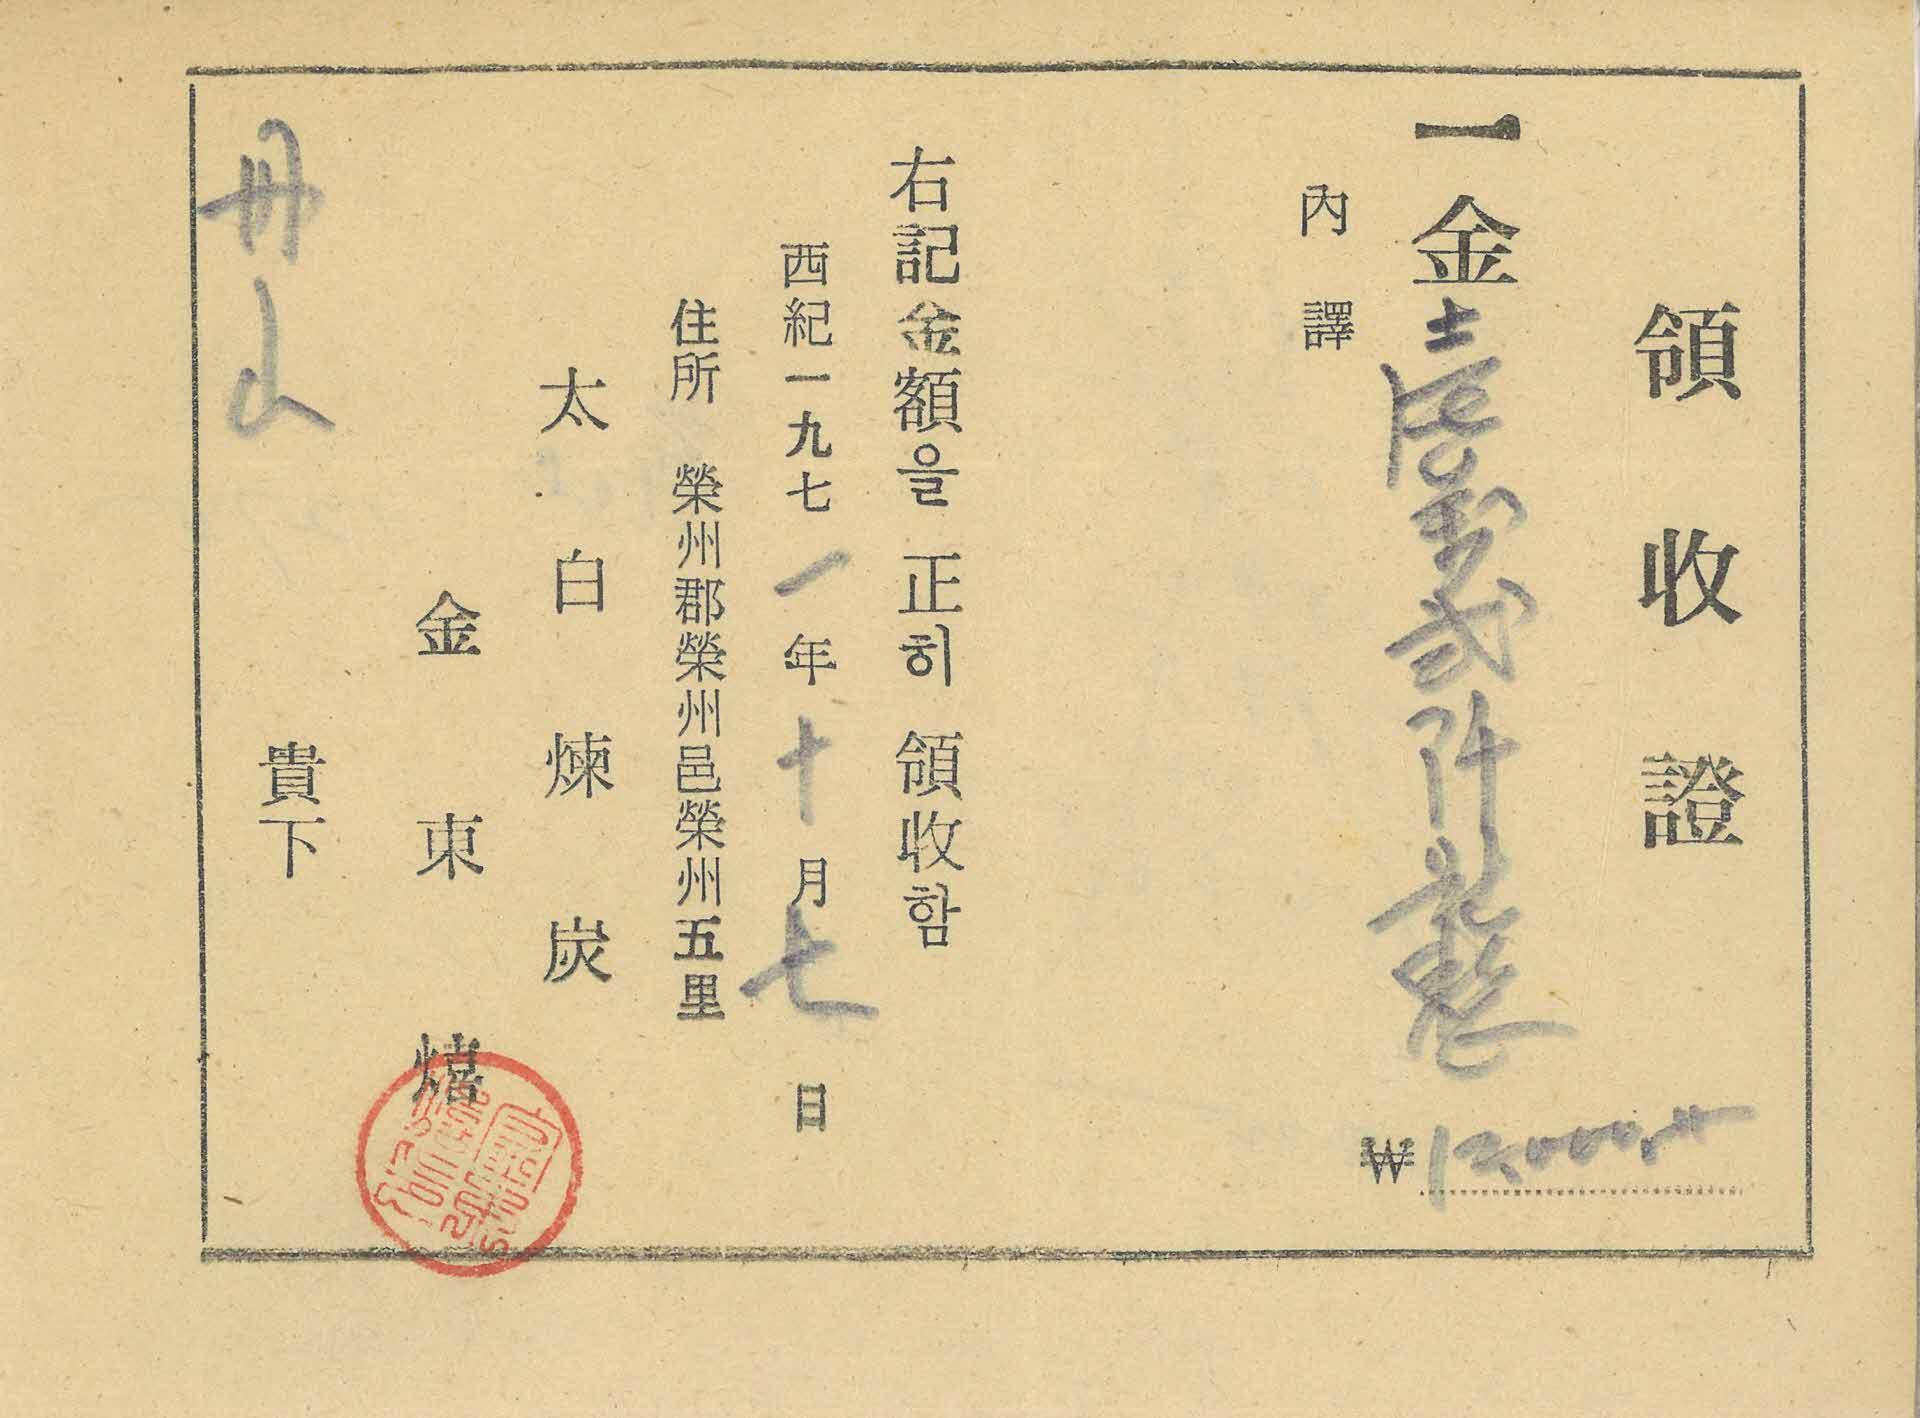 領收證
一金壹萬貳阡원整
₩12,000
內譯
右記金額을 正히 領收함
西紀一九七一年十月七日
住所 榮州郡榮州邑榮州五里
太白煉炭
金東
丹山 貴下